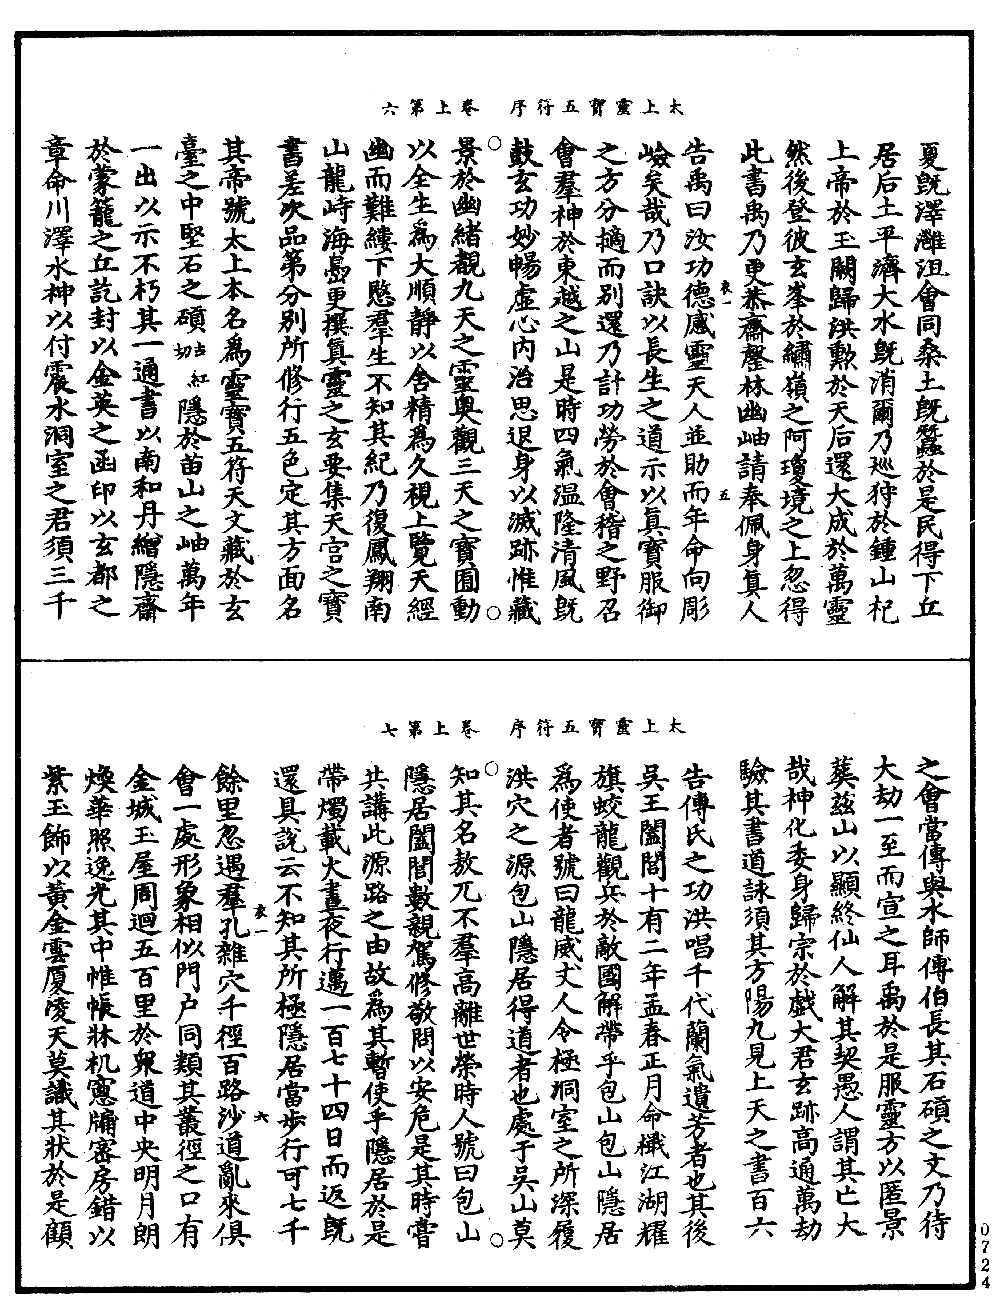 太上靈寶五符序　卷上第六
夏既澤灉沮會同桑土既蠶於是民得下丘
居后土平濟大水既消爾乃巡狩於鍾山祀
上帝於玉闕歸洪勳於天后還大成於萬靈
然後登彼玄峯於繡嶺之阿瓊境之上忽得
此書禹乃更恭齋磬林幽岫請奉佩身真人
告禹曰汝功德感靈天人並助而年命向彫
嶮矣哉乃口訣以長生之道示以真寶服御
之方分擿而別還乃計功勞於會稽之野召
會羣神於東越之山是時四氣温隆清風既
鼓玄功妙暢虛心內治思退身以滅跡惟藏
景於幽緒覩九天之靈奧觀三天之寶囿動
以全生爲大順靜以含精為久視上覽天經
幽而難縷下愍羣生不知其紀乃復鳳翔南
山龍峙海嵒更撰真靈之玄要集天官之寶
書差次品第分別所修行五色定其方面名
其帝號太上本名爲靈寶五符天文藏於玄
臺之中堅石之磧古紅切隱於苗山之岫萬年
一出以示不朽其一通書以南和丹繒隱齋
於蒙籠之丘訖封以金英之函印以玄都之
章命川澤水神以付震水洞室之君須三千
太上靈寶五符序　卷上第七
之會當傳與水師傅伯長其石磧之文乃待
大劫一至而宣之耳禹於是服靈方以匿景
葬茲山以顯終仙人解其契愚人謂其亡大
哉神化委身歸宗於戯大君玄跡高通萬劫
驗其書道詠須其方陽九見上天之書百六
告傅氏之功洪唱千代蘭氣遺芳者也其後
吳王闔閭十有二年孟春正月命檝江湖耀
旗蛟龍觀兵於敵國解帶乎包山包山隱居
爲使者號曰龍威丈人令極洞室之所深履
洪穴之源包山隱居得道者也處于吳山莫
知其名敖兀不羣高離世榮時人號曰包山
隱居闔閭數親駕修敬問以安危是其時嘗
共講此源路之由故爲其暫使乎隱居於是
帶燭載火晝夜行邁一百七十四日而返既
還具說云不知其所極隱居當步行可七千
餘里忽遇羣孔雜穴千徑百路沙道亂來俱
會一處形象相似門户同類其叢徑之口有
金城玉屋周迴五百里於衆道中央明月朗
煥華照逸光其中帷帳牀机窻牖密房錯以
紫玉飾以黃金雲厦凌天莫識其狀於是顧
0724